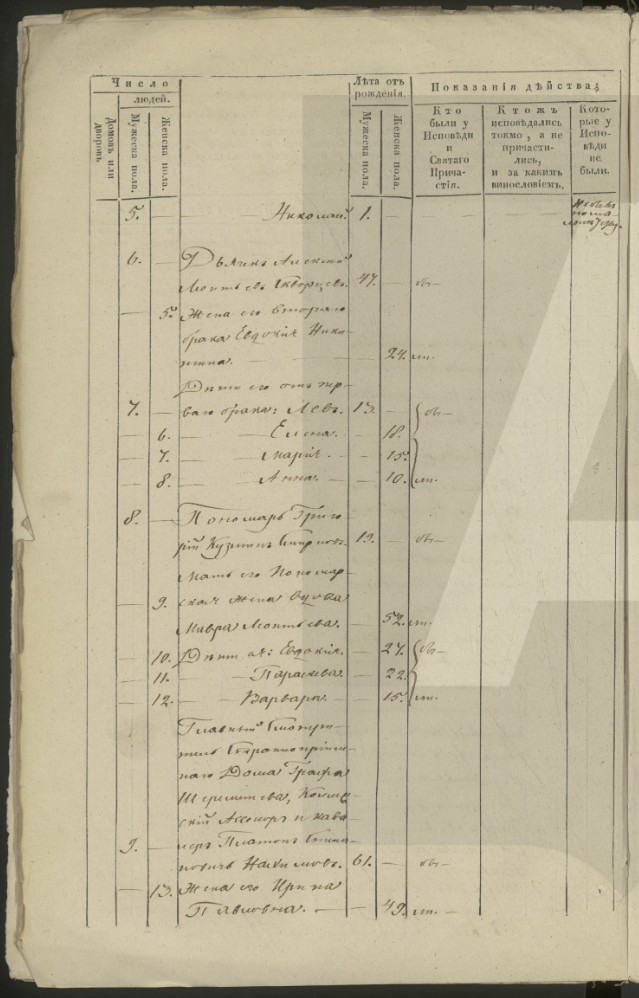 Число
людей.
Домовъ или дворовъ
Мужеска пола.
Женска пола.
Лѣта отъ рожденія.
Мужеска пола.
Женска пола.
Показанія дѣйства:
Кто были у Исповѣди и Святаго Причастія.
Ктожъ исповѣдались токмо, а не причастились, и за какимъ винословіемъ.
Которые у Исповѣди не были.
5. — Николай. 1. — — —
6. — Дьячекъ Алексѣй
Матѣевъ Скворцевъ. 47. — —
— 5. Жена его втораго
брака Евдокія Ники-
тина. — — 24.
Дѣти его отъ пер-
7. — ваго брака: Левъ. 13. —
— 6. — Елена. — 18.
— 7. — Марія. — 15.
— 8. — Анна. — 10.
8. — Пономарь Григо-
рій Кузминъ Смирновъ. 19. — —
Мать его Пономар-
— 9. ская жена вдова
Мавра Матѣева. — 52.
— 10. Дѣти ея: Евдокія. — 27.
— 11. — Параскева. — 22.
— 12. — Варвара. — 15.
Главный Смотри-
тель Страннопріим-
наго Дома Графа
Шереметева, Коллеж-
скій Ассесоръ и кава-
9. — леръ Платонъ Степа-
новичъ Нахимовъ. 61. — —
— 13. Жена его Ирина
Павловна. — — 49.